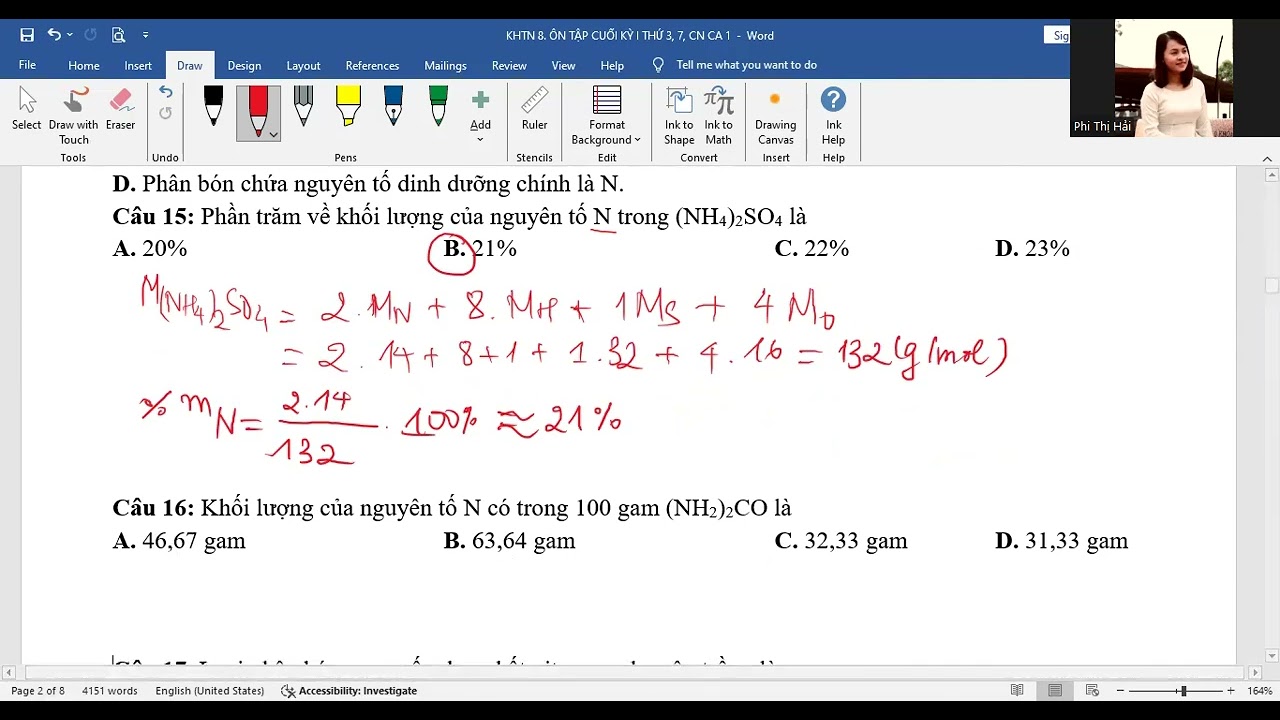 KHTN 8. ÔN TẬP CUỐI KỲ I THỨ 3, 7, CN CA 1 - Word
Sig
File Home Insert Draw Design Layout References Mailings Review View Help Tell me what you want to do
Select Draw with Touch Eraser Add Ruler Format Background Ink to Shape Ink to Math Drawing Canvas Ink Help
Tools Undo Pens Stencils Edit Convert Insert Help
Phi Thị Hải
D. Phân bón chứa nguyên tố dinh dưỡng chính là N.
Câu 15: Phần trăm về khối lượng của nguyên tố N trong (NH4)2SO4 là
A. 20% B. 21% C. 22% D. 23%
M(NH4)2SO4 = 2.MN + 8.MH + 1MS + 4MO
= 2.14 + 8+1 + 1.32 + 4.16 = 132(g/mol)
% mN = 2.14/132 . 100% ≈ 21%
Câu 16: Khối lượng của nguyên tố N có trong 100 gam (NH2)2CO là
A. 46,67 gam B. 63,64 gam C. 32,33 gam D. 31,33 gam
Page 2 of 8 4151 words English (United States) Accessibility: Investigate 164%